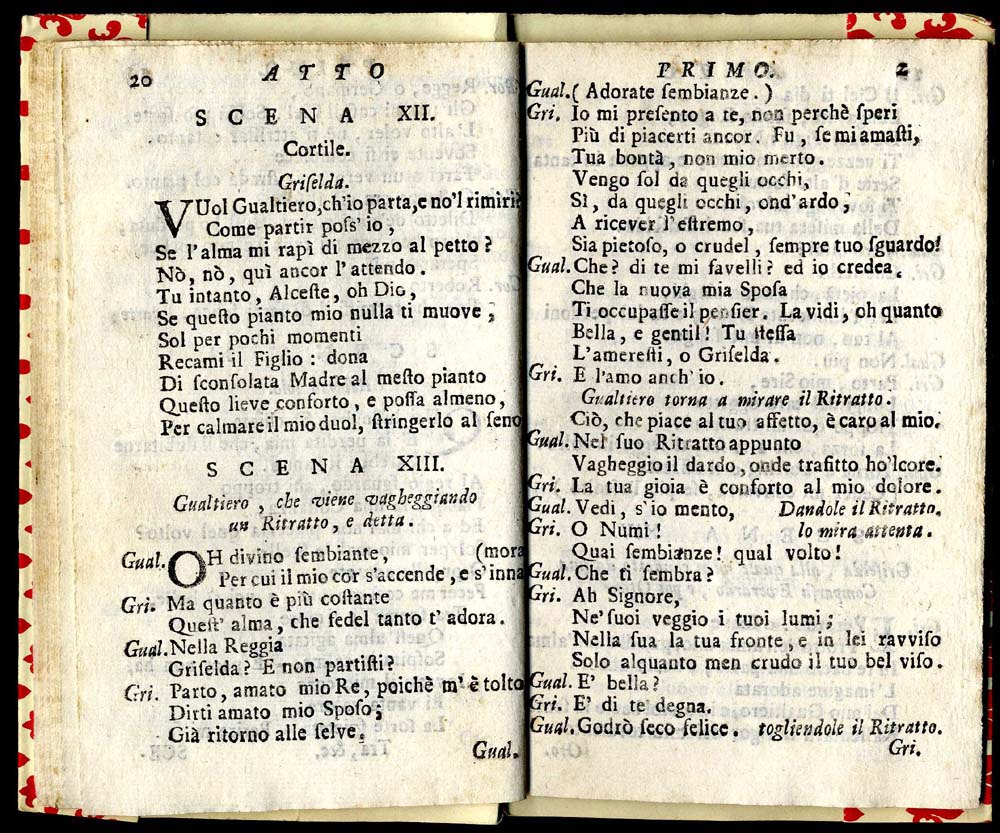 20 ATTO
SCENA XII.
Cortile.
Griſelda.
VUol Gualtiero, ch'io parta, e no'l rimiri?
Come partir poſs'io,
Se l'alma mi rapì di mezzo al petto?
Nò, nò, quì ancor l'attendo.
Tu intanto, Alceſte, oh Dio,
Se queſto pianto mio nulla ti muove;
Sol per pochi momenti
Recami il Figlio: dona
Di ſconſolata Madre al meſto pianto
Queſto lieve conforto, e poſſa almeno,
Per calmare il mio duol, ſtringerlo al ſeno
SCENA XIII.
Gualtiero, che viene vagheggiando
un Ritratto, e detta.
Gual. OH divino ſembiante, (mora
Per cui il mio cor s'accende, e s'inna
Gri. Ma quanto è più coſtante
Queſt' alma, che fedel tanto t'adora.
Gual. Nella Reggia
Griſelda? E non partiſti?
Gri. Parto, amato mio Re, poichè m'è tolto
Dirti amato mio Spoſo;
Già ritorno alle ſelve.
Gual.
PRIMO. 2
Gual. (Adorate ſembianze.)
Gri. Io mi preſento a te, non perchè ſperi
Più di piacerti ancor. Fu, ſe mi amaſti,
Tua bontà, non mio merto.
Vengo ſol da quegli occhi,
Sì, da quegli occhi, ond'ardo,
A ricever l'eſtremo,
Sia pietoſo, o crudel, ſempre tuo ſguardo!
Gual. Che? di te mi favelli? ed io credea,
Che la nuova mia Spoſa
Ti occupaſſe il penſier. La vidi, oh quanto
Bella, e gentil! Tu ſteſſa
L'amereſti, o Griſelda.
Gri. E l'amo anch'io.
Gualtiero torna a mirare il Ritratto.
Ciò, che piace al tuo affetto, è caro al mio.
Gual. Nel ſuo Ritratto appunto
Vagheggio il dardo, onde trafitto ho'lcore.
Gri. La tua gioia è conforto al mio dolore.
Gual. Vedi, s'io mento, Dandole il Ritratto.
Gri. O Numi! lo mira attenta.
Quai ſembianze! qual volto!
Gual. Che ti ſembra?
Gri. Ah Signore,
Ne' ſuoi veggio i tuoi lumi;
Nella ſua la tua fronte, e in lei ravviſo
Solo alquanto men crudo il tuo bel viſo.
Gual. E' bella?
Gri. E' di te degna.
Gual. Godrò ſeco felice. togliendole il Ritratto.
Gri.